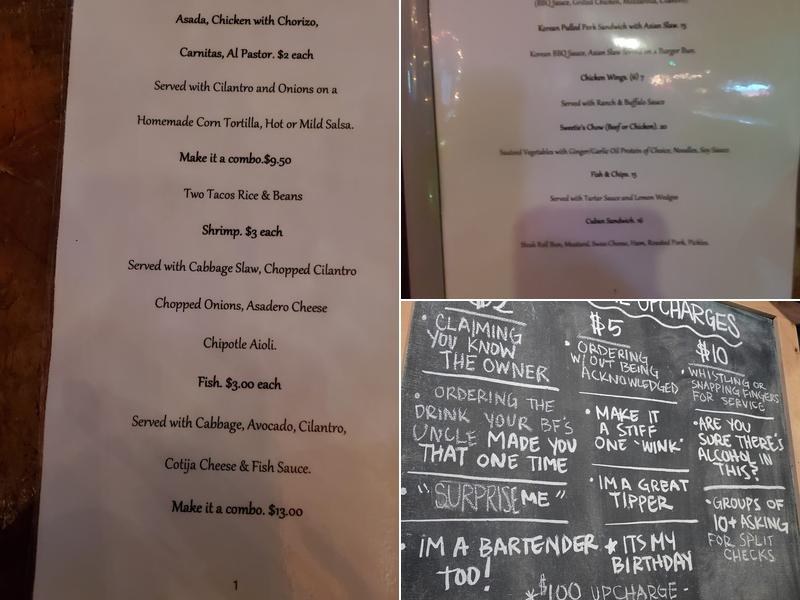 Asada, Chicken with Chorizo,
Carnitas, Al Pastor. $2 each
Served with Cilantro and Onions on a
Homemade Corn Tortilla, Hot or Mild Salsa.
Make it a combo.$9.50
Two Tacos Rice & Beans
Shrimp. $3 each
Served with Cabbage Slaw, Chopped Cilantro
Chopped Onions, Asadero Cheese
Chipotle Aioli.
Fish. $3.00 each
Served with Cabbage, Avocado, Cilantro,
Cotija Cheese & Fish Sauce.
Make it a combo. $13.00
1
(BBQ Sauce, Grilled Chicken, Mozzarella, Cilantro)
Korean Pulled Pork Sandwich with Asian Slaw. 15
Korean BBQ Sauce, Asian Slaw Served on a Burger Bun.
Chicken Wings. (6) 7
Served with Ranch & Buffalo Sauce
Sweetie's Chow (Beef or Chicken). 20
Sauteed Vegetables with Ginger/Garlic Oil Protein of Choice, Noodles, Soy Sauce.
Fish & Chips. 15
Served with Tartar Sauce and Lemon Wedges
Cuban Sandwich. 16
Hoak Roll Bun, Mustard, Swiss Cheese, Ham, Roasted Pork, Pickles.
UPCHARGES
$2
• CLAIMING
YOU KNOW
THE OWNER
• ORDERING THE
DRINK YOUR BF'S
UNCLE MADE YOU
THAT ONE TIME
• "SURPRISE ME"
• I'M A BARTENDER
TOO!
$5
• ORDERING
W/OUT BEING
ACKNOWLEDGED
• MAKE IT
A STIFF
ONE "WINK"
• I'M A GREAT
TIPPER
* ITS MY
BIRTHDAY
*$100 UPCHARGE -
$10
• WHISTLING OR
SNAPPING FINGERS
FOR SERVICE
• ARE YOU
SURE THERE'S
ALCOHOL IN
THIS?
• GROUPS OF
10+ ASKING
FOR SPLIT
CHECKS